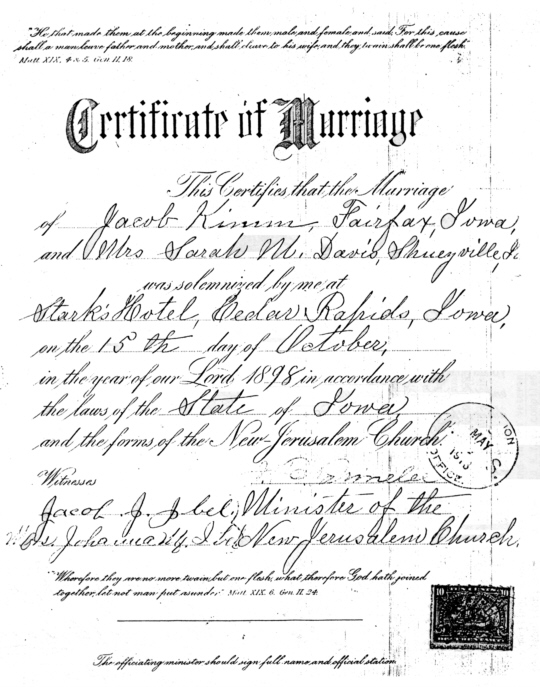 "He that made them at the beginning made them male and female, and said, For this cause
shall a man leave father and mother, and shall cleave to his wife, and they twain shall be one flesh."
Matt. XIX. 4 & 5. Gen. II. 18.
Certificate of Marriage
This Certifies that the Marriage
of Jacob Kimm, Fairfax, Iowa,
and Mrs Sarah M. Davis, Shueyville, Io
was solemnized by me at
Stark's Hotel, Cedar Rapids, Iowa,
on the 15th day of October,
in the year of our Lord 1898 in accordance with
the laws of the State of Iowa
and the forms of the New Jerusalem Church.
ION
MAY
OFFICE
Witnesses
Jacob J. Ibel, Minister of the
Mrs. Johanna New Jerusalem Church.
"Wherefore they are no more twain, but one flesh, what therefore God hath joined
together, let not man put asunder." Matt. XIX. 6. Gen. II. 24.
10 10
The officiating minister should sign full name and official station